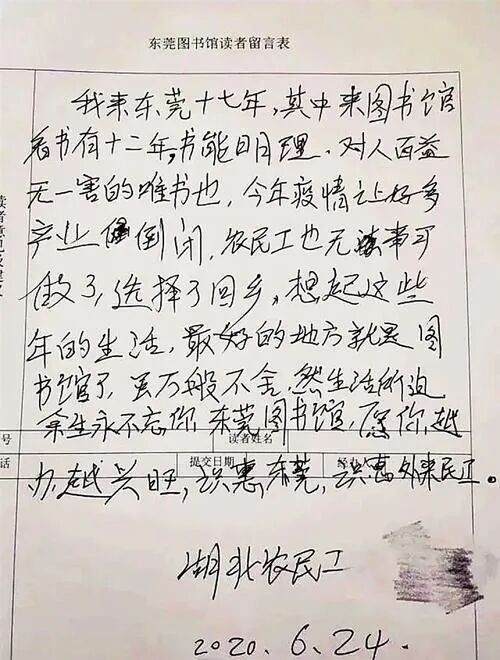 东莞图书馆读者留言表
我来东莞十七年,其中来图书馆
看书有十二年,书能明理,对人百益
无一害的唯书也,今年疫情让好多
产业倒闭,农民工也无事可
做了,选择了回乡,想起这些
年的生活,最好的地方就是图
书馆了,虽万般不舍,然生活所迫
余生永不忘你,东莞图书馆,愿你越
读者姓名
办越兴旺,识惠东莞,识惠外来民工。
号
话
提交日期
经办人
湖北农民工
2020.6.24.